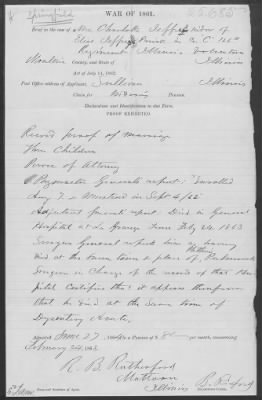 Springfield
WAR OF 1861.
25.685
Brief in the case of Mrs Charlotte Jeffers widow of
Private in Co. C 126th
Regiment Illinois Volunteers
Moultrie County, and State of Illinois
Act of July 14, 1862.
Post Office address of Applicant, Sullivan Illinois
Claim for Widow's Pension.
Declaration and Identification in due Form.
PROOF EXHIBITED.
Record proof of marriage
Children
Power of Attorney
Paymaster General's report: Enrolled
Aug 7. & Mustered in Sept 4/62
Adjutant General's report. Died in General
Hospital at La Grange Tenn Feby 24. 1863
Surgeon General reports him as having
died at the same town & place of Pneumonia
Surgeon in Charge of the records of that Hos
pital Certifies that it appears therefrom
that he died at the same town of
Dysentery Acute.
Admitted June 27 to a Pension of $8 per month, commencing
February 24, 1863.
R. B. Rutherford
Mattoon
Illinois